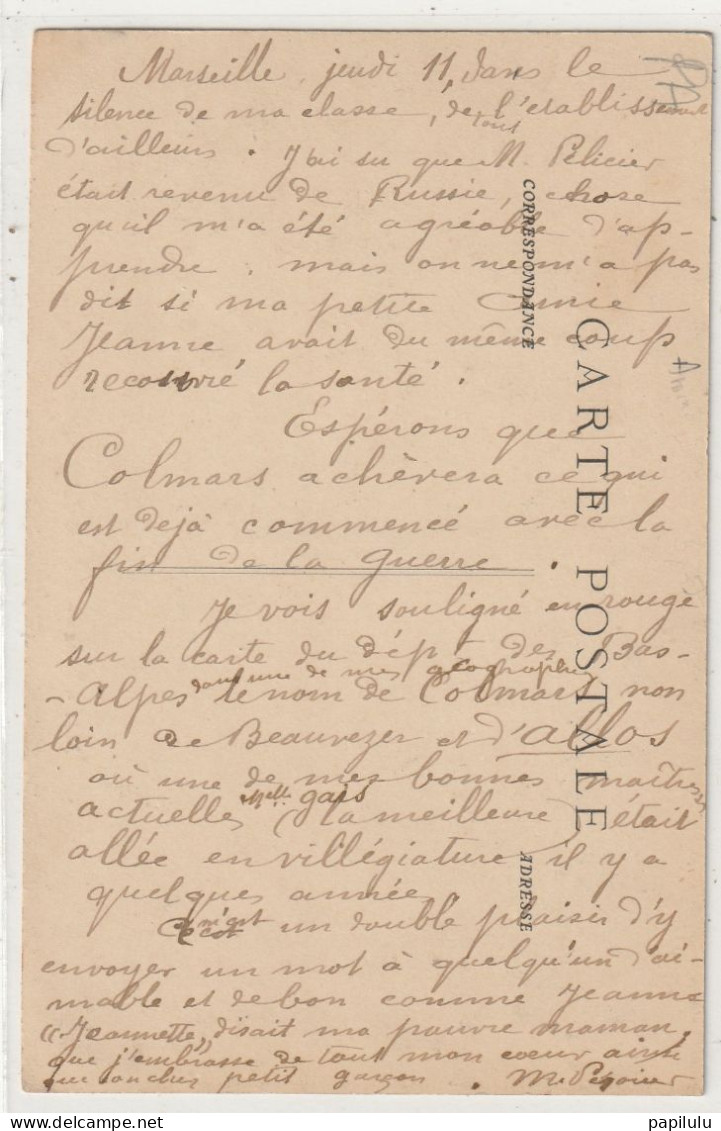 Marseille, jeudi 11, dans le
silence de ma classe, de tout l'établissement
d'ailleurs. J'ai su que M. Pelicier
était revenu de Russie, chose
qu'il m'a été agréable d'ap-
prendre, mais on ne m'a pas
dit si ma petite Amie
Jeanne avait du même coup
recouvré la santé.
Espérons que
Colmars achèvera ce qui
est dejà commencé avec la
fin de la guerre.
Je vois souligné en rouge
sur la carte du dépt des Bas-
dans une de mes géographies
-Alpes le nom de Colmars, non
loin de Beauvezer et d'allos
où une de mes bonnes maîtresses
actuelles Melle gais (la meilleure) était
allée en villégiature il y a
quelques année.
Ce m'est un double plaisir d'y
envoyer un mot à quelqu'un d'ai-
mable et de bon comme Jeanne
"Jeannette", disait ma pauvre maman,
que j'embrasse de tout mon coeur ainsi
que son cher petit garçon. M.
CORRESPONDANCE
CARTE POSTALE
ADRESSE
papilulu